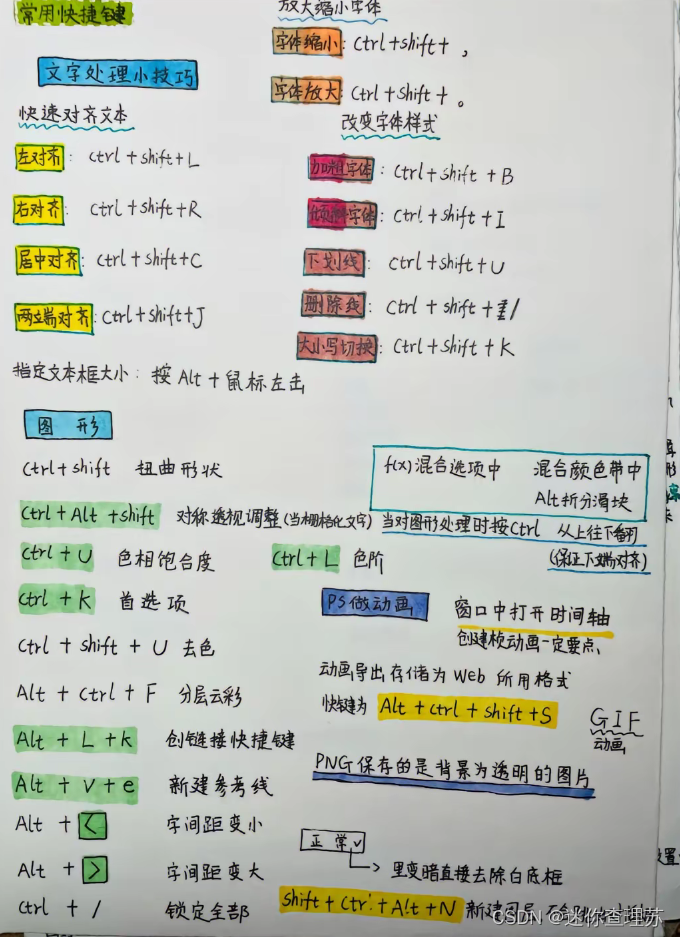 常用快捷键
文字处理小技巧
快速对齐文本
左对齐: Ctrl+shift+L
右对齐: Ctrl+shift+R
居中对齐: Ctrl+shift+C
两端对齐: Ctrl+shift+J
指定文本框大小: 按Alt+鼠标左击
放大缩小字体
字体缩小: Ctrl+shift+ ,
字体放大: Ctrl+shift+ 。
改变字体样式
加粗字体: Ctrl+shift+B
倾斜字体: Ctrl+shift+I
下划线: Ctrl+shift+U
删除线: Ctrl+shift+/
大小写切换: Ctrl+shift+K
图形
Ctrl+shift 扭曲形状
Ctrl+Alt+shift 对称透视调整(当栅格化文字)
Ctrl+U 色相饱合度
Ctrl+L 色阶
Ctrl+K 首选项
Ctrl+shift+U 去色
Alt+Ctrl+F 分层云彩
Alt+L+k 创链接快捷键
Alt+v+e 新建参考线
Alt+< 字间距变小
Alt+> 字间距变大
Ctrl+/ 锁定全部
f(x)混合选项中 混合颜色带中
Alt折分滑块
当对图形处理时按Ctrl 从上往下翻
(保证下端对齐)
PS做动画
窗口中打开时间轴
创建桢动画一定要点
动画导出存储为Web所用格式
快键为 Alt+ctrl+shift+S
GIF
动画
PNG保存的是背景为透明的图片
正常√
里变暗直接去除白底框
shift+Ctrl+Alt+N 新建图层
CSDN @迷你查理苏